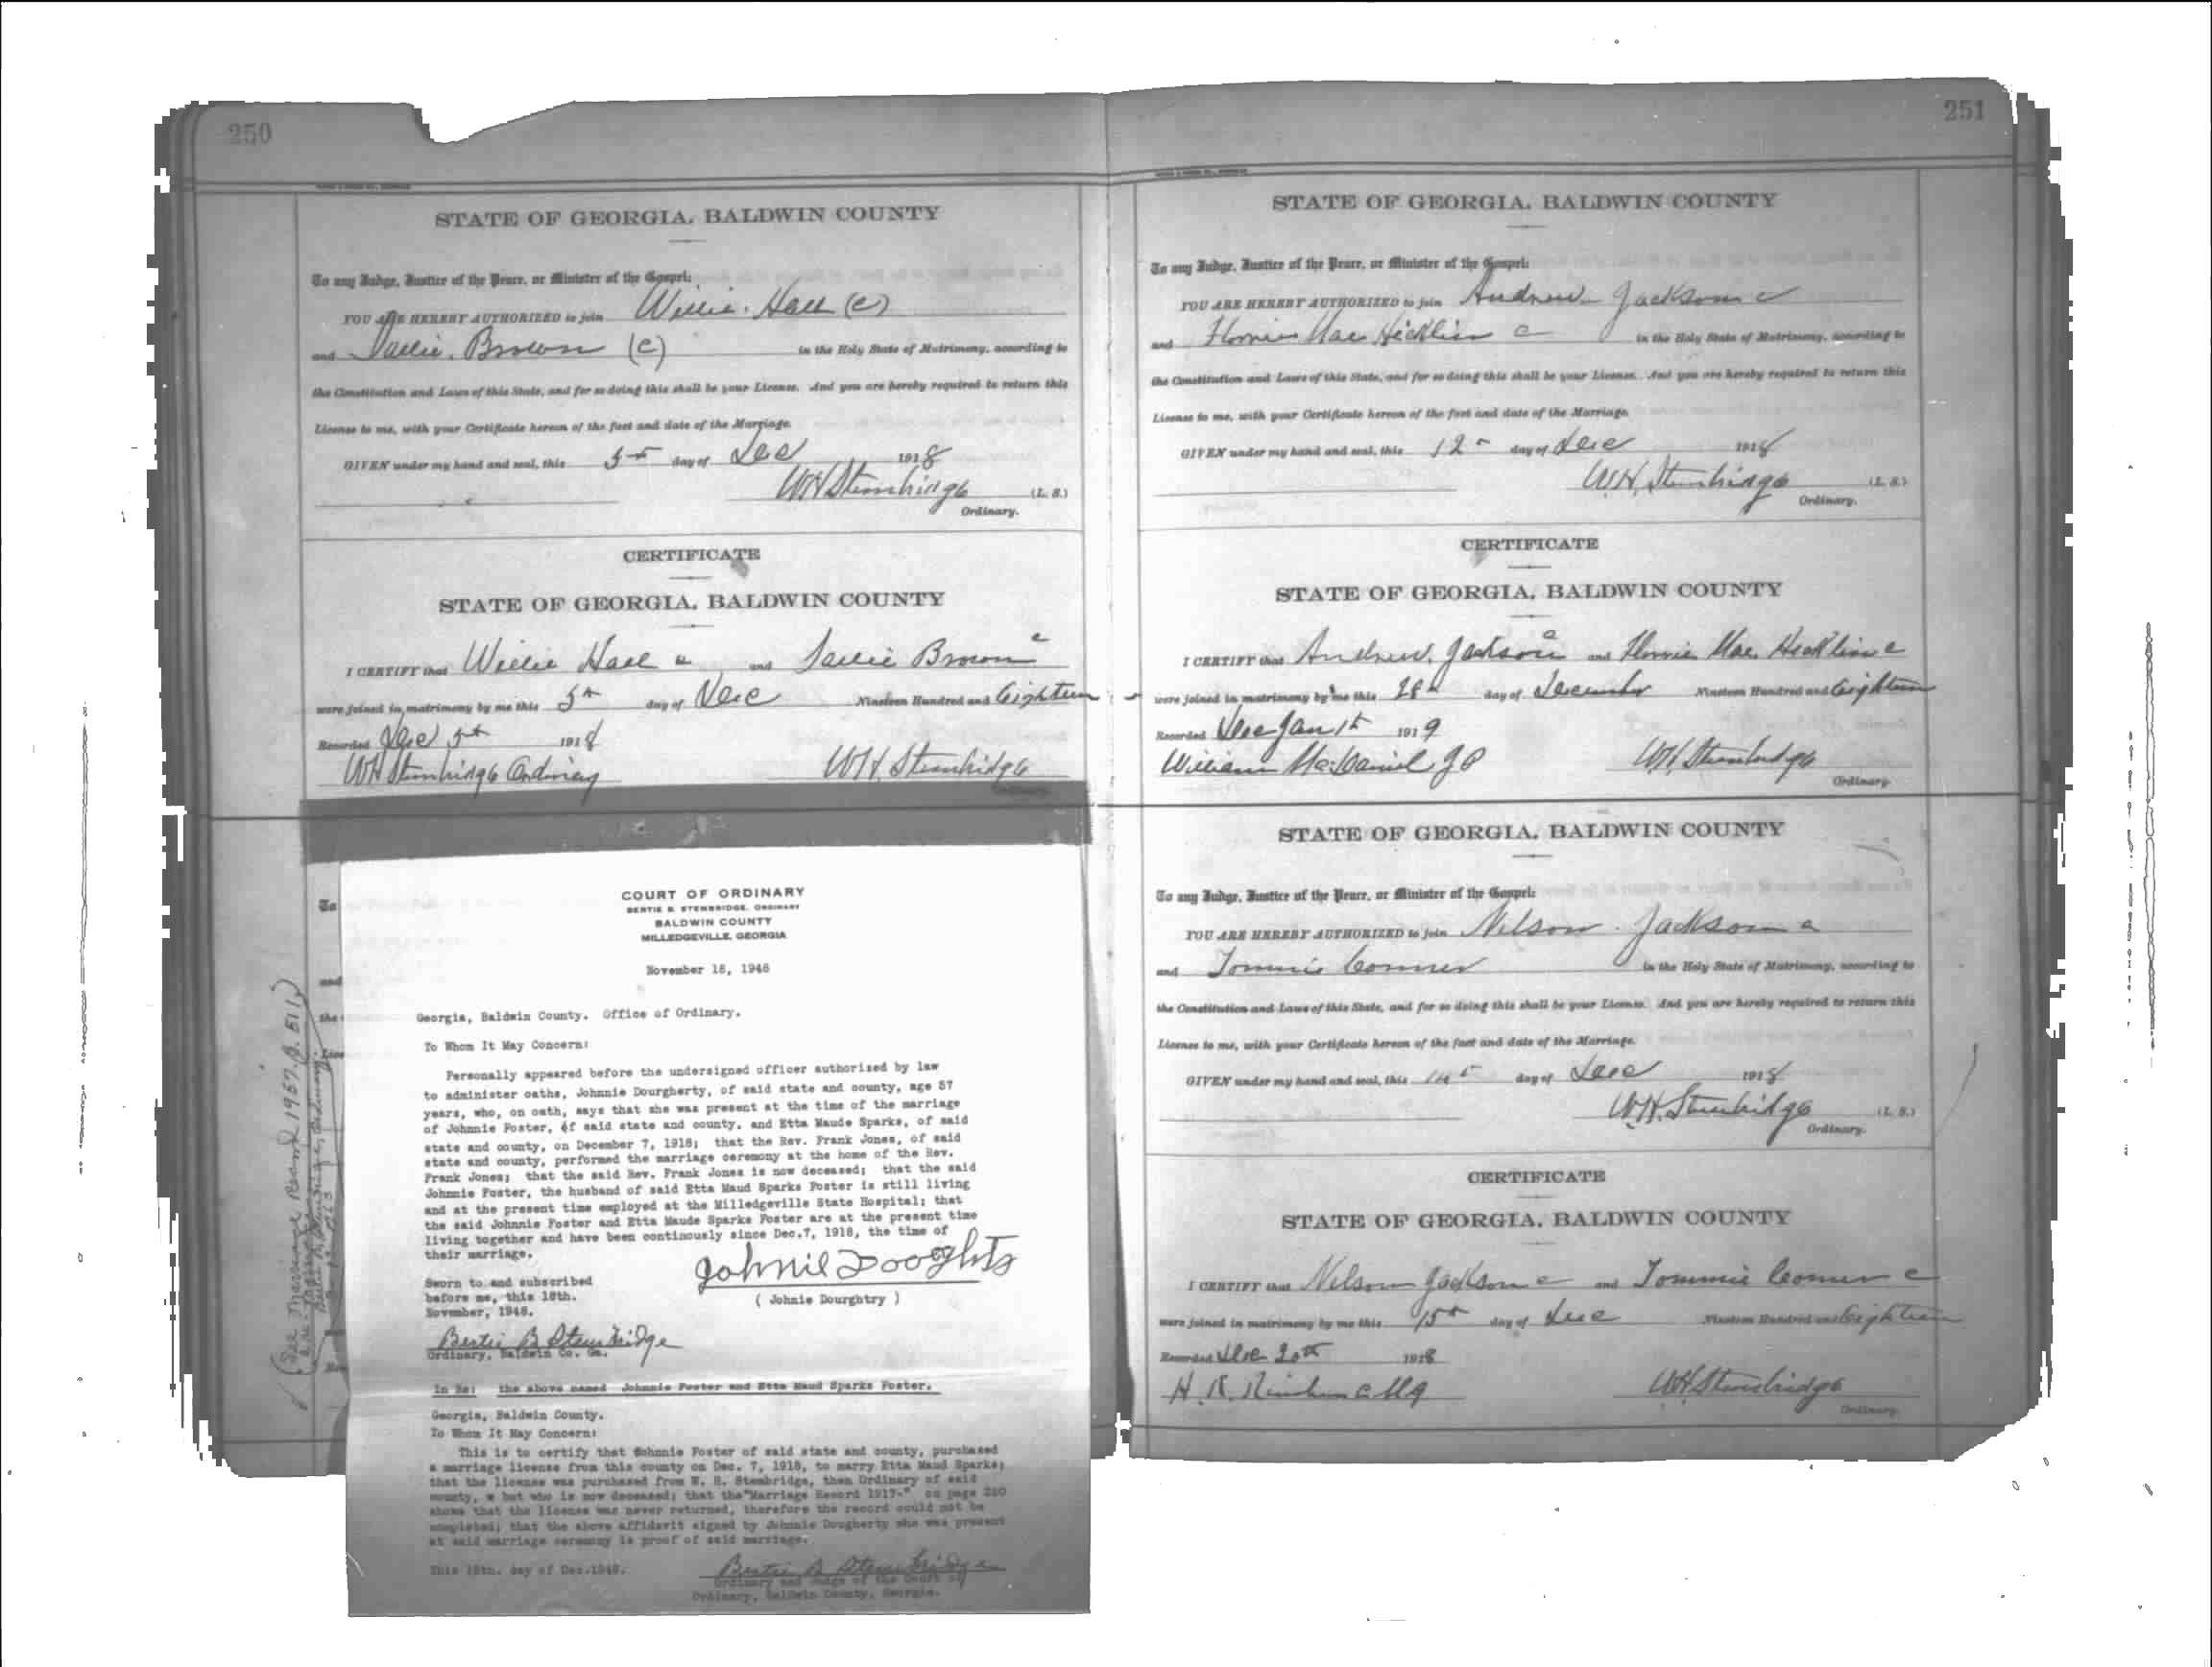 250
STATE OF GEORGIA, BALDWIN COUNTY
To any Judge, Justice of the Peace, or Minister of the Gospel:
YOU ARE HEREBY AUTHORIZED to join Willie Hall (C)
and Sallie Brown (C) in the Holy State of Matrimony, according to
the Constitution and Laws of this State, and for so doing this shall be your License. And you are hereby required to return this
License to me, with your Certificate hereon of the fact and date of the Marriage.
GIVEN under my hand and seal, this 5th day of Dec 1918
WH Stembridge (L. S.)
Ordinary.
CERTIFICATE
STATE OF GEORGIA, BALDWIN COUNTY
I CERTIFY that Willie Hall c and Sallie Brown c
were joined in matrimony by me this 5th day of Dec Nineteen Hundred and Eighteen
Recorded Dec 5th 1918
WH Stembridge Ordinary W.H. Stembridge
Ordinary
To
and
the
COURT OF ORDINARY
BERTIE B. STEMBRIDGE, ORDINARY
BALDWIN COUNTY
MILLEDGEVILLE, GEORGIA
November 18, 1948
Georgia, Baldwin County. Office of Ordinary.
To Whom It May Concern:
Personally appeared before the undersigned officer authorized by law
to administer oaths, Johnnie Dourgherty, of said state and county, age 57
years, who, on oath, says that she was present at the time of the marriage
of Johnnie Foster, of said state and county, and Etta Maude Sparks, of said
state and county, on December 7, 1918; that the Rev. Frank Jones, of said
state and county, performed the marriage ceremony at the home of the Rev.
Frank Jones; that the said Rev. Frank Jones is now deceased; that the said
Johnnie Foster, the husband of said Etta Maud Sparks Foster is still living
and at the present time employed at the Milledgeville State Hospital; that
the said Johnnie Foster and Etta Maude Sparks Foster are at the present time
living together and have been continously since Dec.7, 1918, the time of
their marriage.
Sworn to and subscribed
before me, this 18th.
November, 1948.
( Johnie Dourghtry )
Bertie B Stembridge
Ordinary, Baldwin Co. Ga.
In Re: the above named Johnnie Foster and Etta Maud Sparks Foster.
Georgia, Baldwin County.
To Whom It May Concern:
This is to certify that Johnnie Foster of said state and county, purchased
a marriage license from this county on Dec. 7, 1918, to marry Etta Maud Sparks;
that the license was purchased from W. H. Stembridge, then Ordinary of said
county, but who is now deceased; that the "Marriage Record 1917-" on page 250
shows that the license was never returned, therefore the record could not be
completed; that the above affidavit signed by Johnnie Dougherty who was present
at said marriage ceremony is proof of said marriage.
This 18th. day of Dec.1948.
Bertie B Stembridge
Ordinary and Judge of the Court of
Ordinary, Baldwin County, Georgia.
(See Marriage Record 1957. p. 511.)
251
STATE OF GEORGIA, BALDWIN COUNTY
To any Judge, Justice of the Peace, or Minister of the Gospel:
YOU ARE HEREBY AUTHORIZED to join Andrew Jackson c
and Florrie Mae Hicklin c in the Holy State of Matrimony, according to
the Constitution and Laws of this State, and for so doing this shall be your License. And you are hereby required to return this
License to me, with your Certificate hereon of the fact and date of the Marriage.
GIVEN under my hand and seal, this 12 day of Dec 1918
W.H. Stembridge (L. S.)
Ordinary.
CERTIFICATE
STATE OF GEORGIA, BALDWIN COUNTY
I CERTIFY that Andrew Jackson c and Florrie Mae Hicklin c
were joined in matrimony by me this 28th day of December Nineteen Hundred and Eighteen
Recorded Dec Jan 1st 1919
William McDaniel JP W.H. Stembridge
Ordinary
STATE OF GEORGIA, BALDWIN COUNTY
To any Judge, Justice of the Peace, or Minister of the Gospel:
YOU ARE HEREBY AUTHORIZED to join Nelson Jackson c
and Tommie Comer in the Holy State of Matrimony, according to
the Constitution and Laws of this State, and for so doing this shall be your License. And you are hereby required to return this
License to me, with your Certificate hereon of the fact and date of the Marriage.
GIVEN under my hand and seal, this 14 day of Dec 1918
W.H. Stembridge (L. S.)
Ordinary.
CERTIFICATE
STATE OF GEORGIA, BALDWIN COUNTY
I CERTIFY that Nelson Jackson c and Tommie Comer c
were joined in matrimony by me this 15th day of Dec Nineteen Hundred and Eighteen
Recorded Dec 20th 1918
WH Stembridge
Ordinary